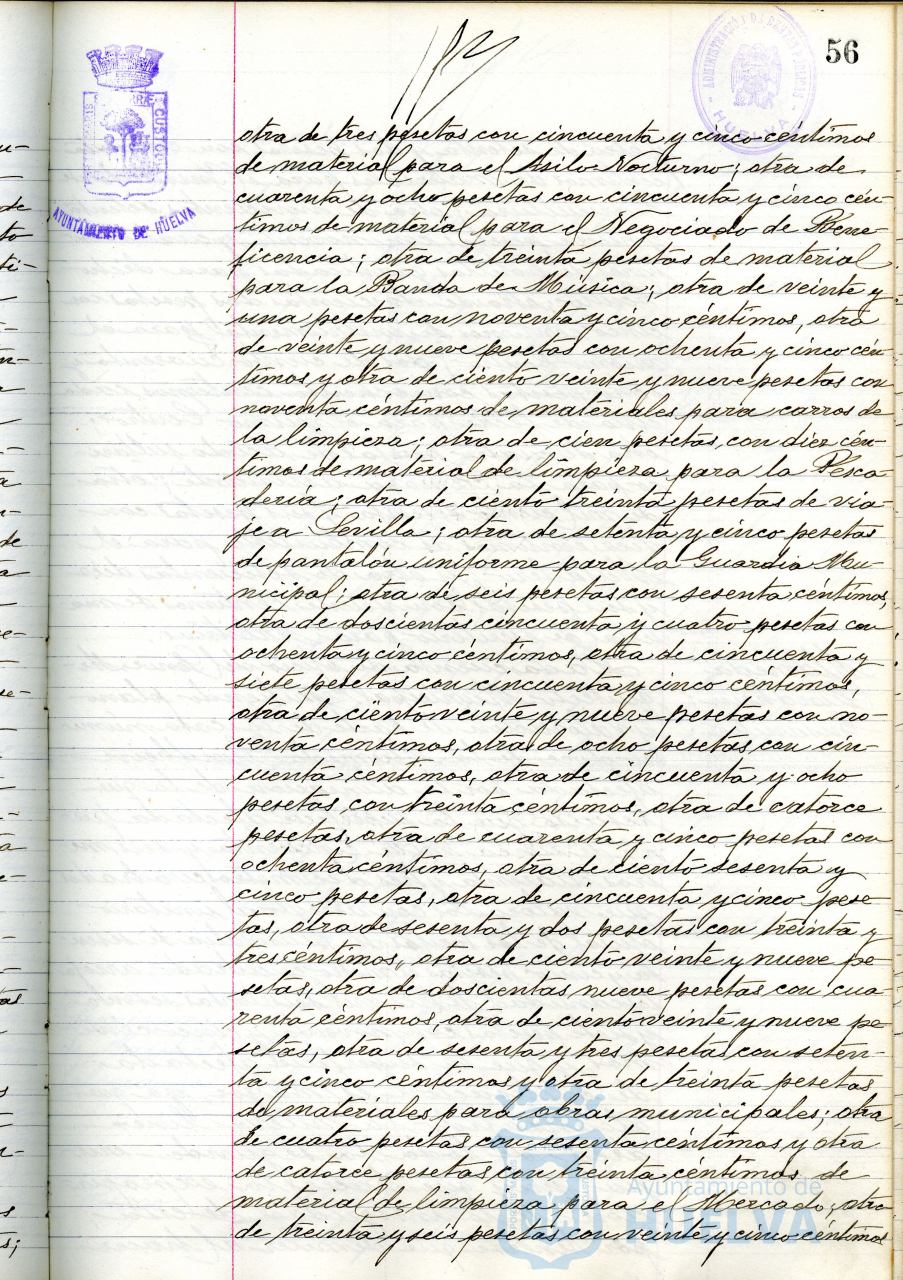 56
AYUNTAMIENTO DE HUELVA
otra de tres pesetas con cincuenta y cinco céntimos
de material para el Asilo Nocturno; otra de
cuarenta y ocho pesetas con cincuenta y cinco cén-
timos de material para el Negociado de Bene-
ficencia; otra de treinta pesetas de material
para la Banda de Música; otra de veinte y
una pesetas con noventa y cinco céntimos, otra
de veinte y nueve pesetas con ochenta y cinco cén-
timos y otra de ciento veinte y nueve pesetas con
noventa céntimos de materiales para carros de
la limpieza; otra de cien pesetas con diez cén-
timos de material de limpieza para la Pesca-
dería; otra de ciento treinta pesetas de via-
je a Sevilla; otra de setenta y cinco pesetas
de pantalón uniforme para la Guardia Mu-
nicipal; otra de seis pesetas con sesenta céntimos,
otra de doscientas cincuenta y cuatro pesetas con
ochenta y cinco céntimos, otra de cincuenta y
siete pesetas con cincuenta y cinco céntimos,
otra de ciento veinte y nueve pesetas con no-
venta céntimos, otra de ocho pesetas con cin-
cuenta céntimos, otra de cincuenta y ocho
pesetas con treinta céntimos, otra de catorce
pesetas, otra de cuarenta y cinco pesetas con
ochenta céntimos, otra de ciento sesenta y
cinco pesetas, otra de cincuenta y cinco pese-
tas, otra de sesenta y dos pesetas con treinta y
tres céntimos, otra de ciento veinte y nueve pe-
setas, otra de doscientas nueve pesetas con cua-
renta céntimos, otra de ciento veinte y nueve pe-
setas, otra de sesenta y tres pesetas con seten-
ta y cinco céntimos y otra de treinta pesetas
de materiales para obras municipales; otra
de cuatro pesetas con sesenta céntimos y otra
de catorce pesetas con treinta céntimos de
material de limpieza para el Mercado; otra
de treinta y seis pesetas con veinte y cinco céntimos
Ayuntamiento de
HUELVA